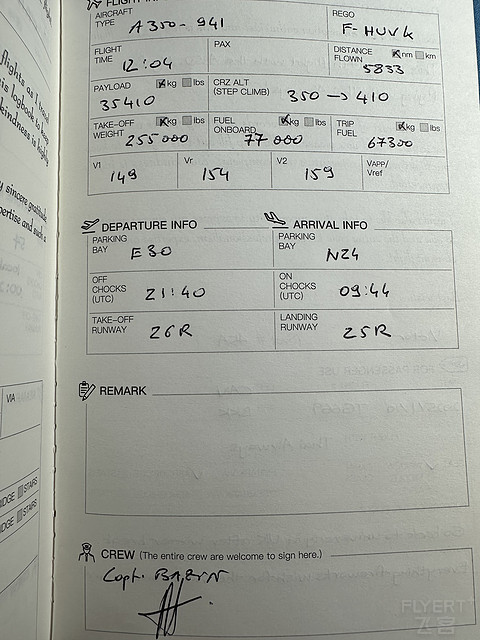 FLIGHT IN
AIRCRAFT TYPE A350-941
REGO F-HUVK
FLIGHT TIME 12:04
PAX
DISTANCE FLOWN nm km 5833
PAYLOAD kg lbs 35410
CRZ ALT (STEP CLIMB) 350 → 410
TAKE-OFF WEIGHT kg lbs 255000
FUEL ONBOARD kg lbs 77000
TRIP FUEL kg lbs 67300
V1 149
Vr 154
V2 159
VAPP/ Vref
DEPARTURE INFO
ARRIVAL INFO
PARKING BAY E30
PARKING BAY N24
OFF CHOCKS (UTC) 21:40
ON CHOCKS (UTC) 09:44
TAKE-OFF RUNWAY 26R
LANDING RUNWAY 25R
REMARK
CREW (The entire crew are welcome to sign here.)
Capt.
flights as I
his logbook to keep
kindness is highly
y sincere gratitude
pertise and such a
VIA
IDGE STAIRS
IDGE STAIRS
FLYERT
飞客